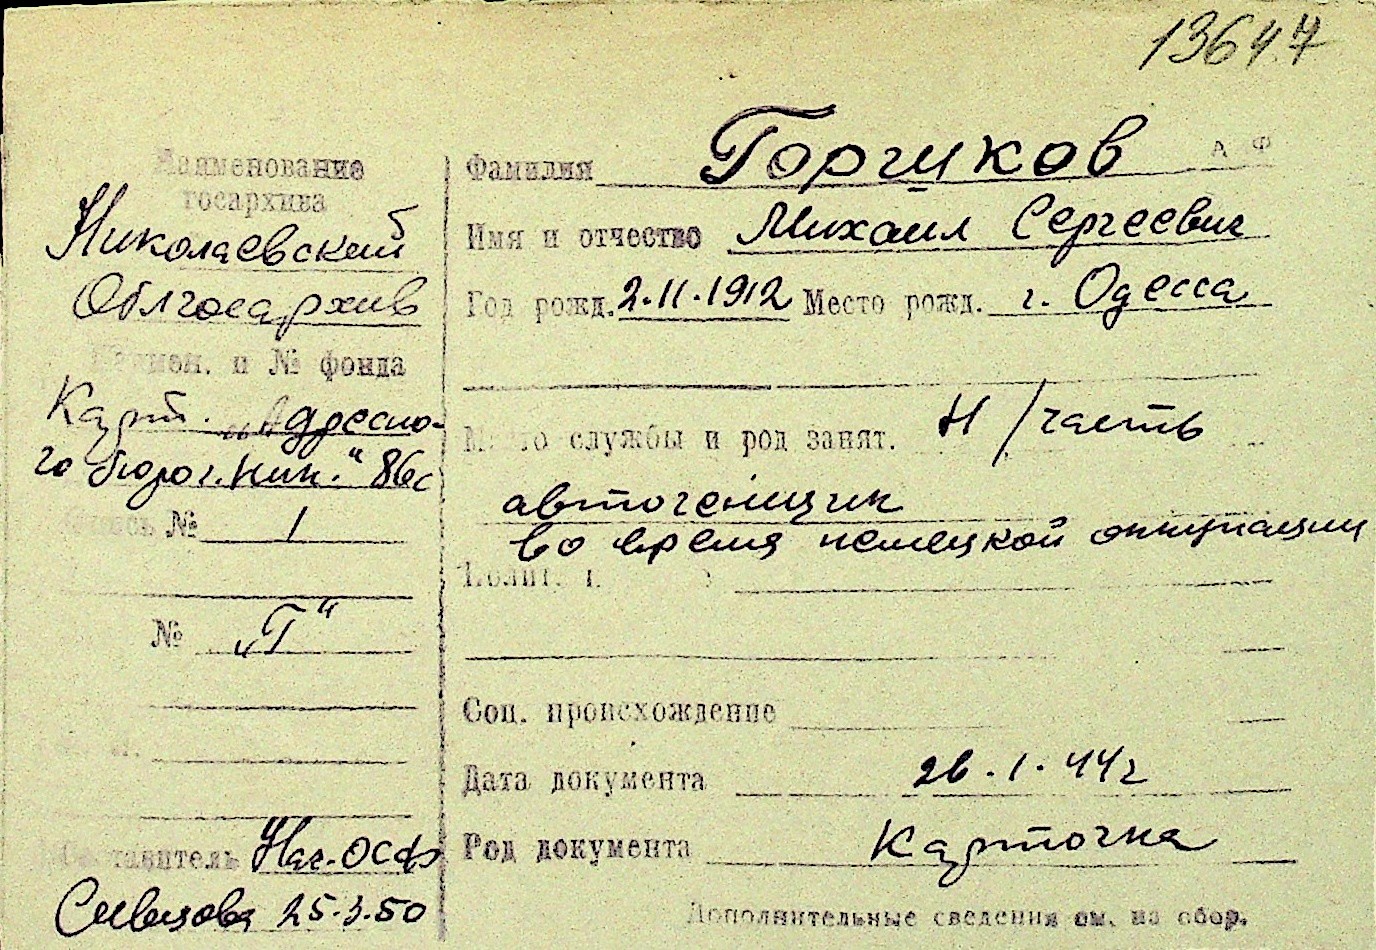 13647
Наименование
госархива
Николаевский
Облгосархив
Наимен. и № фонда
Карт. „Адресно-
го бюро г. Ник." 86с
Опись № 1
№ „Г"
Составитель Нач. ОСФ
25.3.50
Фамилия Горшков А Ф
Имя и отчество Михаил Сергеевич
Год рожд. 2.11.1912 Место рожд. г. Одесса
Место службы и род занят. Н/часть
автогенщик
во время немецкой оккупации
Соц. происхождение
Дата документа 26.1.44г
Род документа Карточка
Дополнительные сведения см. на обор.